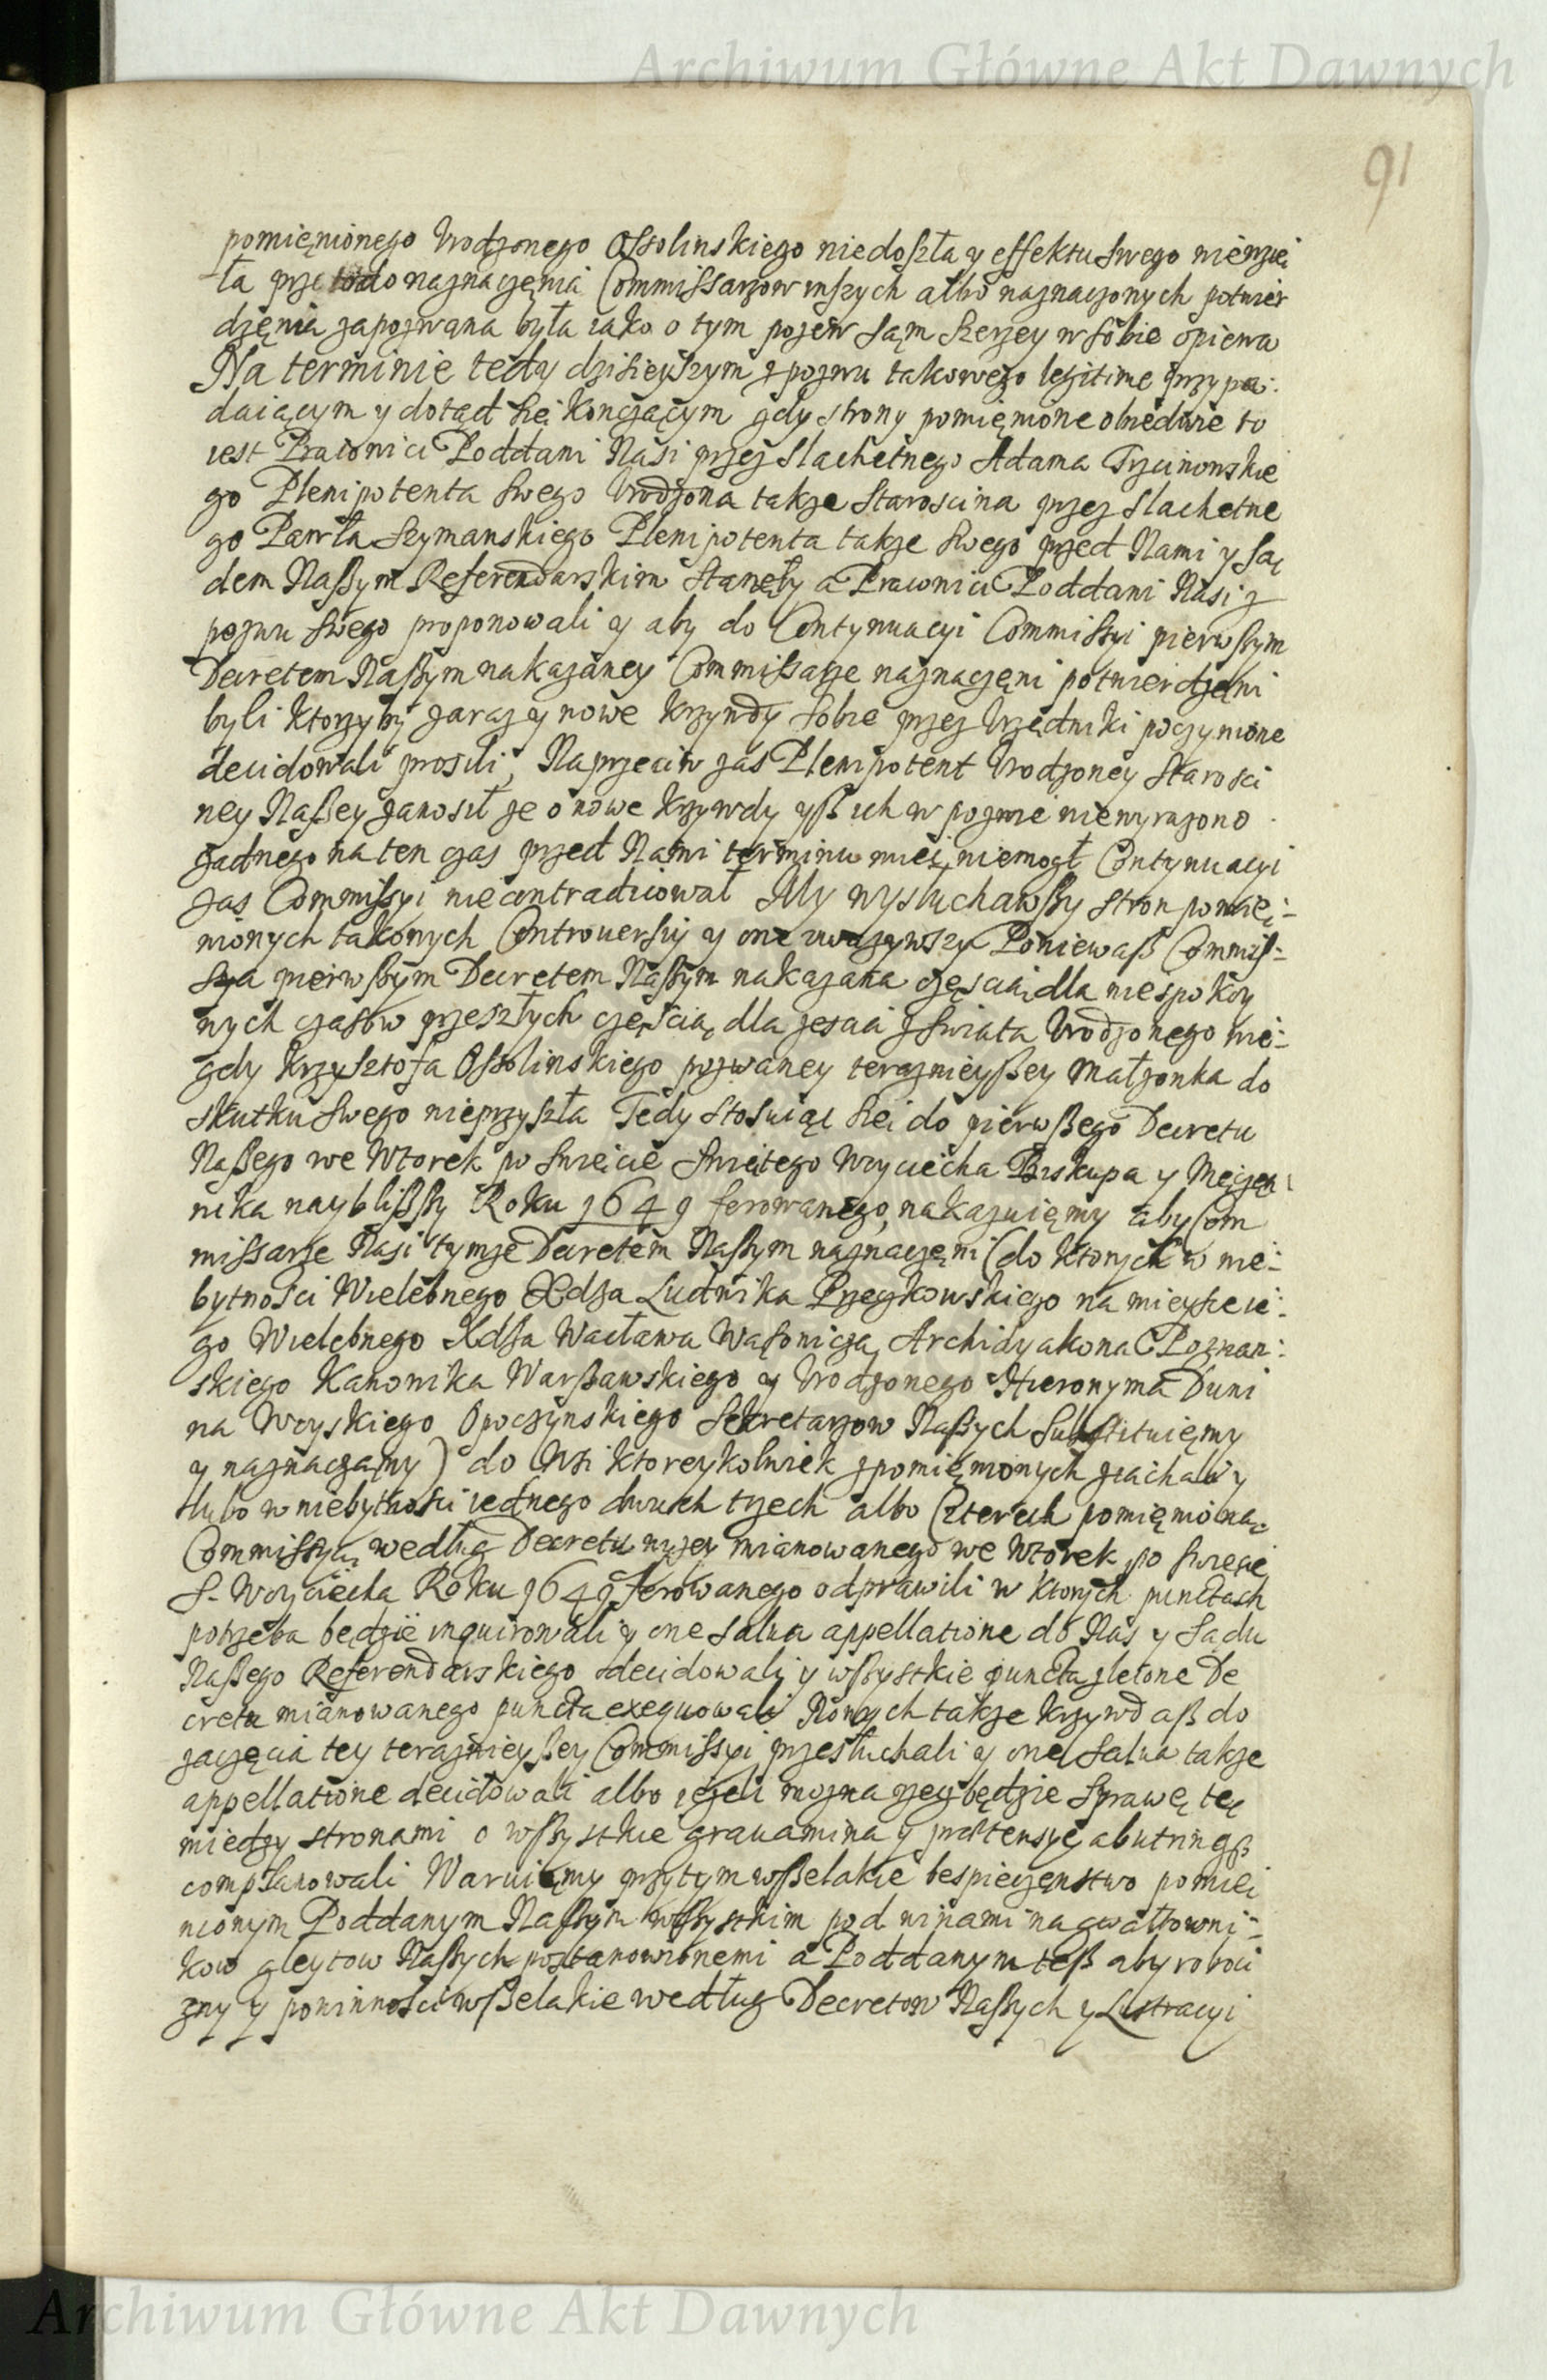 Archiwum Główne Akt Dawnych
91
pomięnionego Vrodzonego Ossolinskiego niedoszła y effektu swego niewzię
ła prze todo naznaczęnia Commissarzow inszych albo naznaczonych potwier
dzęnia zapozwana była iako o tym pozew sąm szerzey w sobie opiewa
Na terminie tedy dzisieyszym z pozwu takowego legitime przypa:
daiącym y dotąd się kończącym gdy strony pomięnione obiedwie to
iest Pracowici Poddani Nasi przez Slachetnego Adama Trzcinowskie
go Plenipotenta swego Vrodzona takze Starościna przez Slachetne
go Pawła Szymanskiego Plenipotenta takze swego przed Nami y Są
dem Naszym Referendarskim Stanęły a Pracowici Poddani Nasi z
pozwu swego proponowali y aby do Contynuacyi Commissyi pierwszym
Decretem Naszym nakazaney Commissarze naznaczęni potwierdzęni
byli ktorzyby zaraz y nowe krzywdy sobie przez Vrzędniki poczynione
decidowali prosili, Naprzeciw zaś Plenipotent Vrodzoney Starości
ney Naszey zanosił ze o nowe krzywdy ysz ich w pozwie niewyrazono
zadnego na ten czas przed Nami terminu mieć niemogł Contynuacyi
zas Commissyi niecontradicował My wysłuchawszy stron pomię:
nionych takowych Controuersiy y one vwazywszy Poniewasz Commis:
sya pierwszym Decretem Naszym nakazana częscią dla niespokoy
nych czasow przeszłych częścią dla zescia z swiata Vrodzonego nie:
gdy Krzysztofa Ossolinskiego pozwaney teraznieyszey Małzonka do
skutku swego nieprzyszła Tedy stosuiąc się do pierwszego Decretu
Naszego we Wtorek po Swięcie Swiętego Woyciecha Biskupa y Męczen
nika naybliszszy Roku 1649 ferowanego, nakazuięmy aby Com
missarze Nasi tymze Decretem Naszym naznaczęni (do ktorych w nie:
bytności Wielebnego Xdza Ludwika Pzeczkowskiego na mieysce ie:
go Wielebnego Xdza Wacława Wąsowicza Archidyakona Poznan:
skiego Kanonika Warszawskiego y Vrodzonego Hieronyma Duni
na Woyskiego Opoczynskiego Sekretarzow Naszych Substituięmy
y naznaczamy) do Wsi ktoreykolwiek z pomięnionych ziachali y
lubo w niebytności iednego dwuch trzech albo czterech pomięnioną
Commissyą według Decretu wyzey mianowanego we Wtorek po Swięcie
S. Woyciecha Roku 1649 ferowanego odprawili w ktorych punctach
potrzeba będzie inquirowali y one salua appellatione do Nas y Sądu
Naszego Referendarskiego decidowali y wszystkie puncta zlecone De
cretu mianowanego puncta exequowali Nowych takze krzywd asz do
zaczęcia tey teraznieyszey Commissyi przesłuchali y one salua takze
appellatione decidowali albo iezeli mozna rzecz będzie Sprawę tę
między stronami o wszystkie grauamina y prætensye ab utrinqs
complanowali Waruięmy przytym wszelakie bespieczęnstwo pomię
nionym Poddanym Naszym wszystkim pod winami na gwałtowni:
kow gleytow Naszych postanowionemi a Poddanym tesz aby roboci
zny y powinności wszelakie według Decretow Naszych y Lustracyi
Archiwum Główne Akt Dawnych